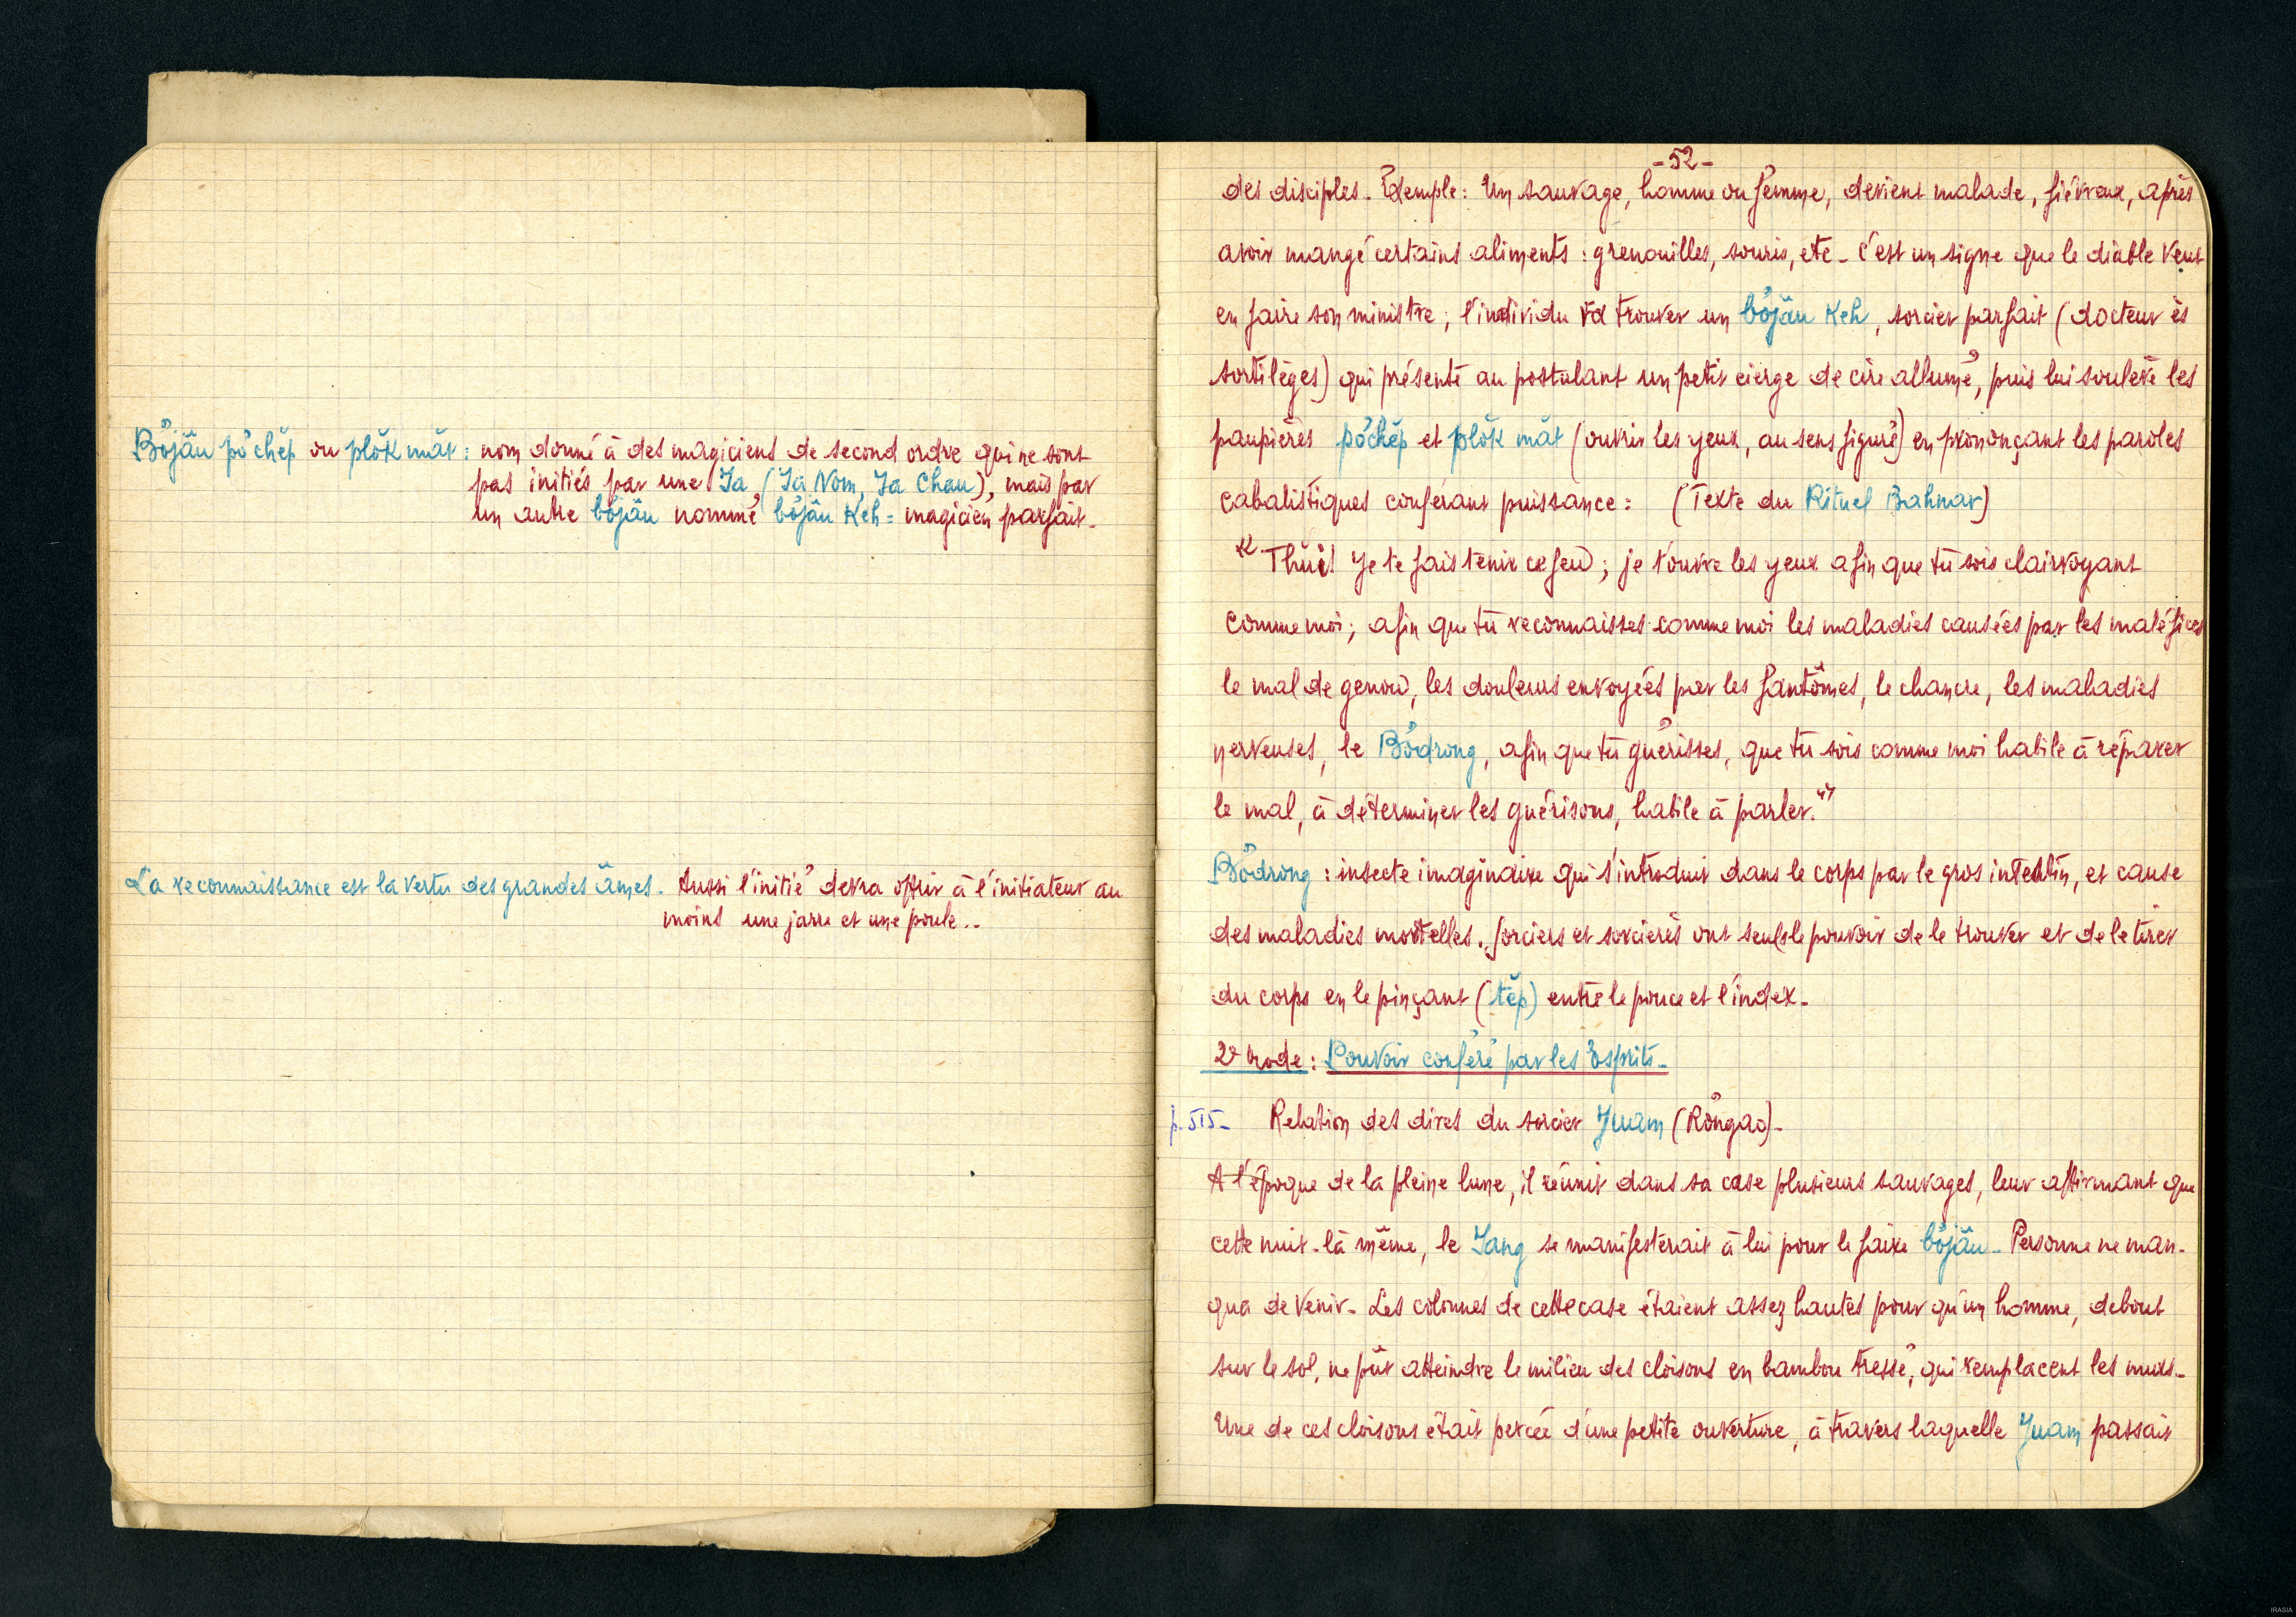 Bơ̆jâu pơchĕp ou plŏk măt : nom donné à des magiciens de second ordre qui ne sont
pas initiés par une Ia (Ia Nom, Ia Chau), mais par
un autre bơ̆jâu nommé bơ̆jâu Keh = magicien parfait.
La reconnaissance est la vertu des grandes âmes. Aussi l'initié devra offrir à l'initiateur au
moins une jarre et une poule..
-52-
des disciples. Exemple : Un sauvage, homme ou femme, devient malade, fiévreux, après
avoir mangé certains aliments : grenouilles, souris, etc. C'est un signe que le diable veut
en faire son ministre ; l'individu va trouver un bơ̆jâu Keh, sorcier parfait (docteur ès
sortilèges) qui présente au postulant un petit cierge de cire allumé, puis lui soulève les
paupières pơchĕp et plŏk măt (ouvrir les yeux, au sens figuré) en prononçant les paroles
cabalistiques conférant puissance : (Texte du Rituel Bahnar)
"Thui! Je te fais tenir ce feu ; je t'ouvre les yeux afin que tu sois clairvoyant
comme moi ; afin que tu reconnaisses comme moi les maladies causées par les maléfices
le mal de genou, les douleurs envoyées par les fantômes, le chancre, les maladies
nerveuses, le Bơ̆drong, afin que tu guérisses, que tu sois comme moi habile à réparer
le mal, à déterminer les guérisons, habile à parler."
Bơ̆drong : insecte imaginaire qui s'introduit dans le corps par le gros intestin, et cause
des maladies mortelles. Sorciers et sorcières ont seuls le pouvoir de le trouver et de le tirer
du corps en le pinçant (tĕp) entre le pouce et l'index.
2e mode : Pouvoir conféré par les Esprits.
p. 515. Relation des dires du sorcier Yuam (Rơ̆ngao).
A l'époque de la pleine lune, il réunit dans sa case plusieurs sauvages, leur affirmant que
cette nuit-là même, le Iang se manifesterait à lui pour le faire bơ̆jâu. Personne ne man-
qua de venir. Les colonnes de cette case étaient assez hautes pour qu'un homme, debout
sur le sol, ne pût atteindre le milieu des cloisons en bambou tressé, qui remplacent les murs.
Une de ces cloisons était percée d'une petite ouverture, à travers laquelle Yuam passait